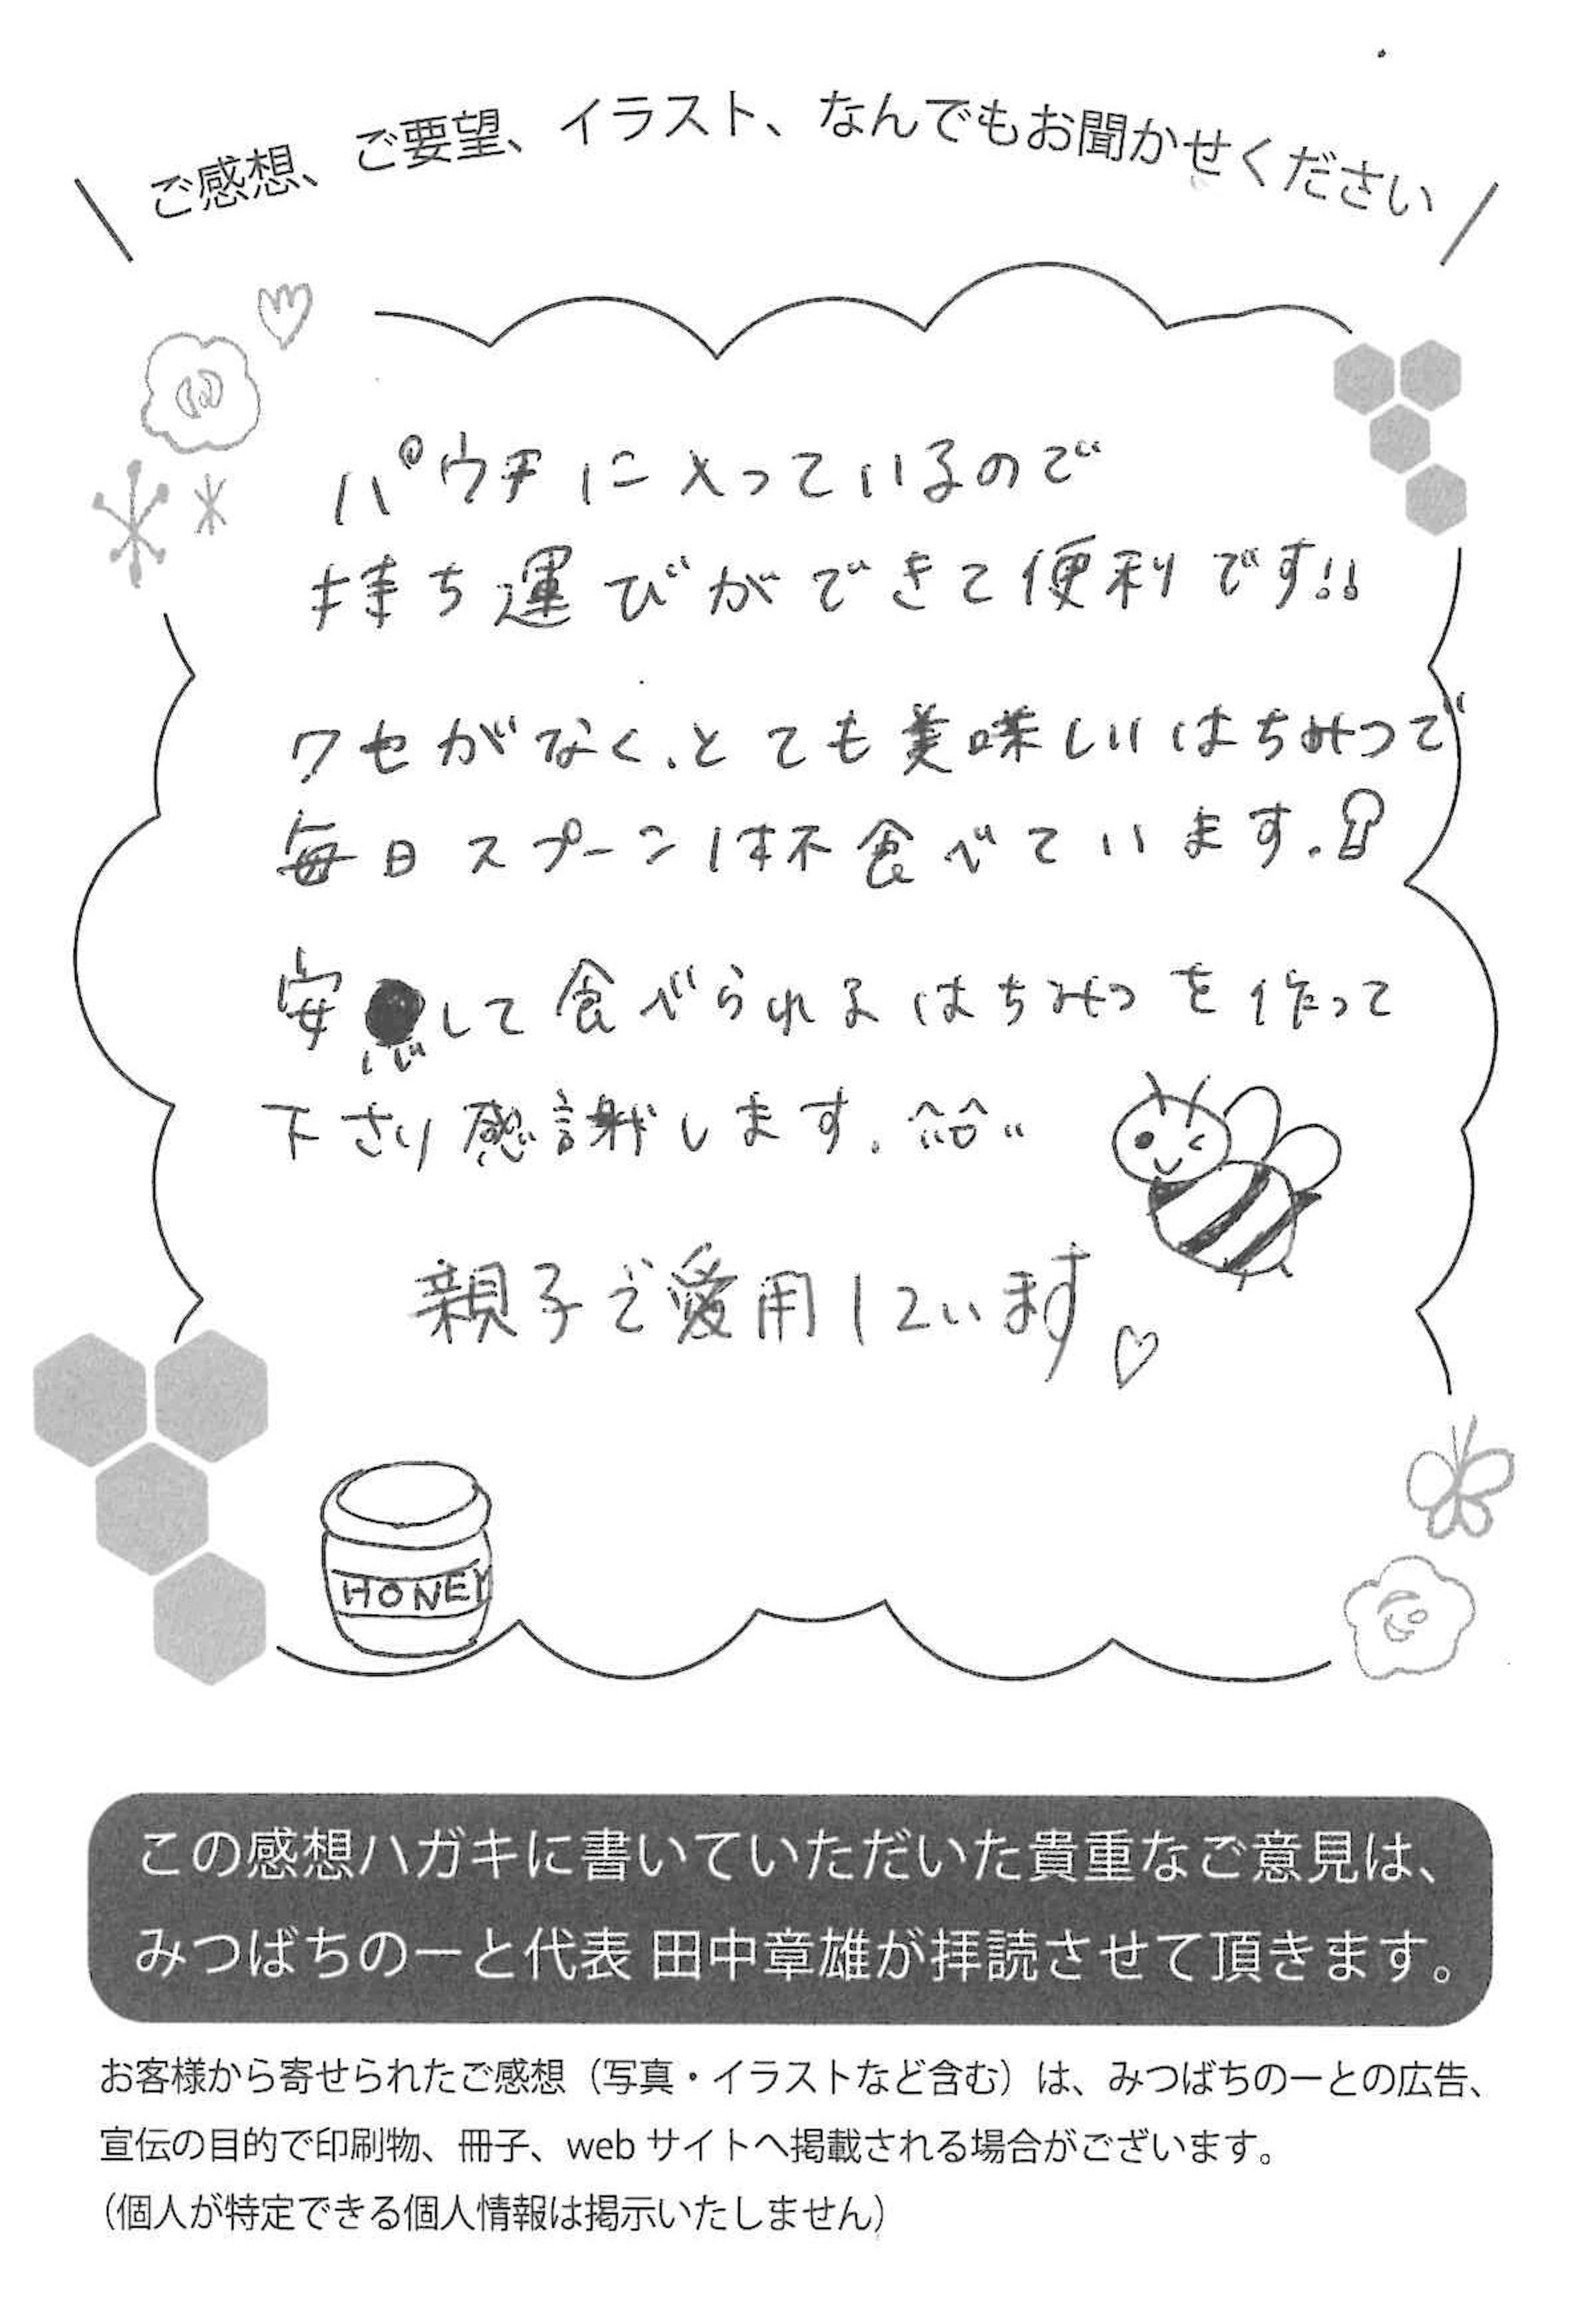 ご感想、ご要望、イラスト、なんでもお聞かせください
パウチに入っているので
持ち運びができて便利です!!
クセがなく、とても美味しいはちみつで
毎日スプーン1杯食べています。
安心して食べられるはちみつを作って
下さり感謝します。
親子で愛用しています♡
HONEY
この感想ハガキに書いていただいた貴重なご意見は、
みつばちのーと代表 田中章雄が拝読させて頂きます。
お客様から寄せられたご感想（写真・イラストなど含む）は、みつばちのーとの広告、
宣伝の目的で印刷物、冊子、web サイトへ掲載される場合がございます。
（個人が特定できる個人情報は掲示いたしません）